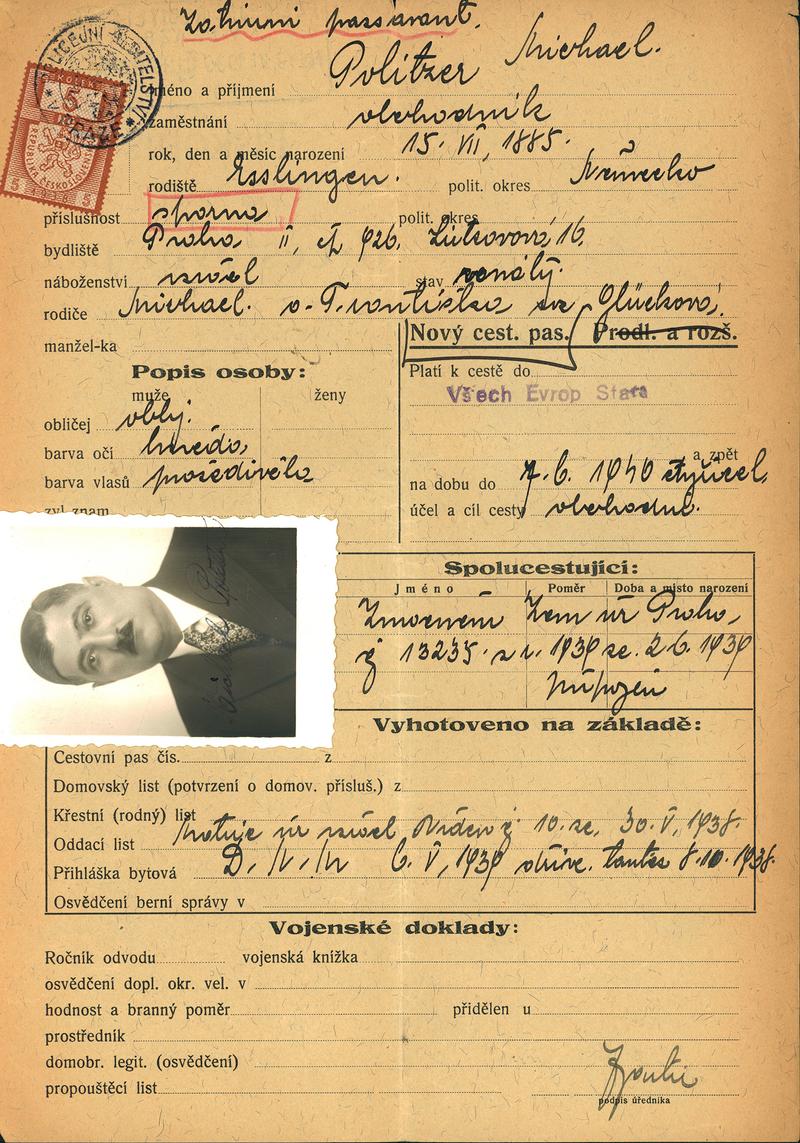 Zatímní passavant.
POLICEJNÍ ŘEDITELSTVÍ
V PRAZE
KOLEK
5
REPUBLIKA ČESKOSLOVENSKÁ
5 1938 5
Jméno a příjmení Politzer Michael.
zaměstnání obchodník
rok, den a měsíc narození 15. VII, 1885.
rodiště Esslingen. polit. okres Německo
příslušnost sporna polit. okres
bydliště Praha II, čp 926. Lützovová, 16.
náboženství israel stav ženatý.
rodiče Michael. a. Františka Glückova,
manžel-ka
Nový cest. pas. Prodl. a rozš.
Popis osoby:
muže ženy
obličej obly.
barva očí hnědo,
barva vlasů prošedivělo
zvl znam
Platí k cestě do
Všech Evrop Stara
a zpět
na dobu do 7. 6. 1940
účel a cíl cesty obchodně.
Spolucestující:
Jméno Poměr Doba a místo narození
Zmocnění Zem úř Praha,
č 13235. z r. 1939 ze. 2 6. 1939
Připojen
Vyhotoveno na základě:
Cestovní pas čís. z
Domovský list (potvrzení o domov. přísluš.) z
Křestní (rodný) list
Oddací list Matrič úř israel Vídeň č 10. ze. 30. V, 1938.
Přihláška bytová D. V. 6. V, 1939 dříve. tamtéž 8. 10. 1938.
Osvědčení berní správy v
Vojenské doklady:
Ročník odvodu vojenská knížka
osvědčení dopl. okr. vel. v
hodnost a branný poměr přidělen u
prostředník
domobr. legit. (osvědčení)
propouštěcí list
podpis úředníka